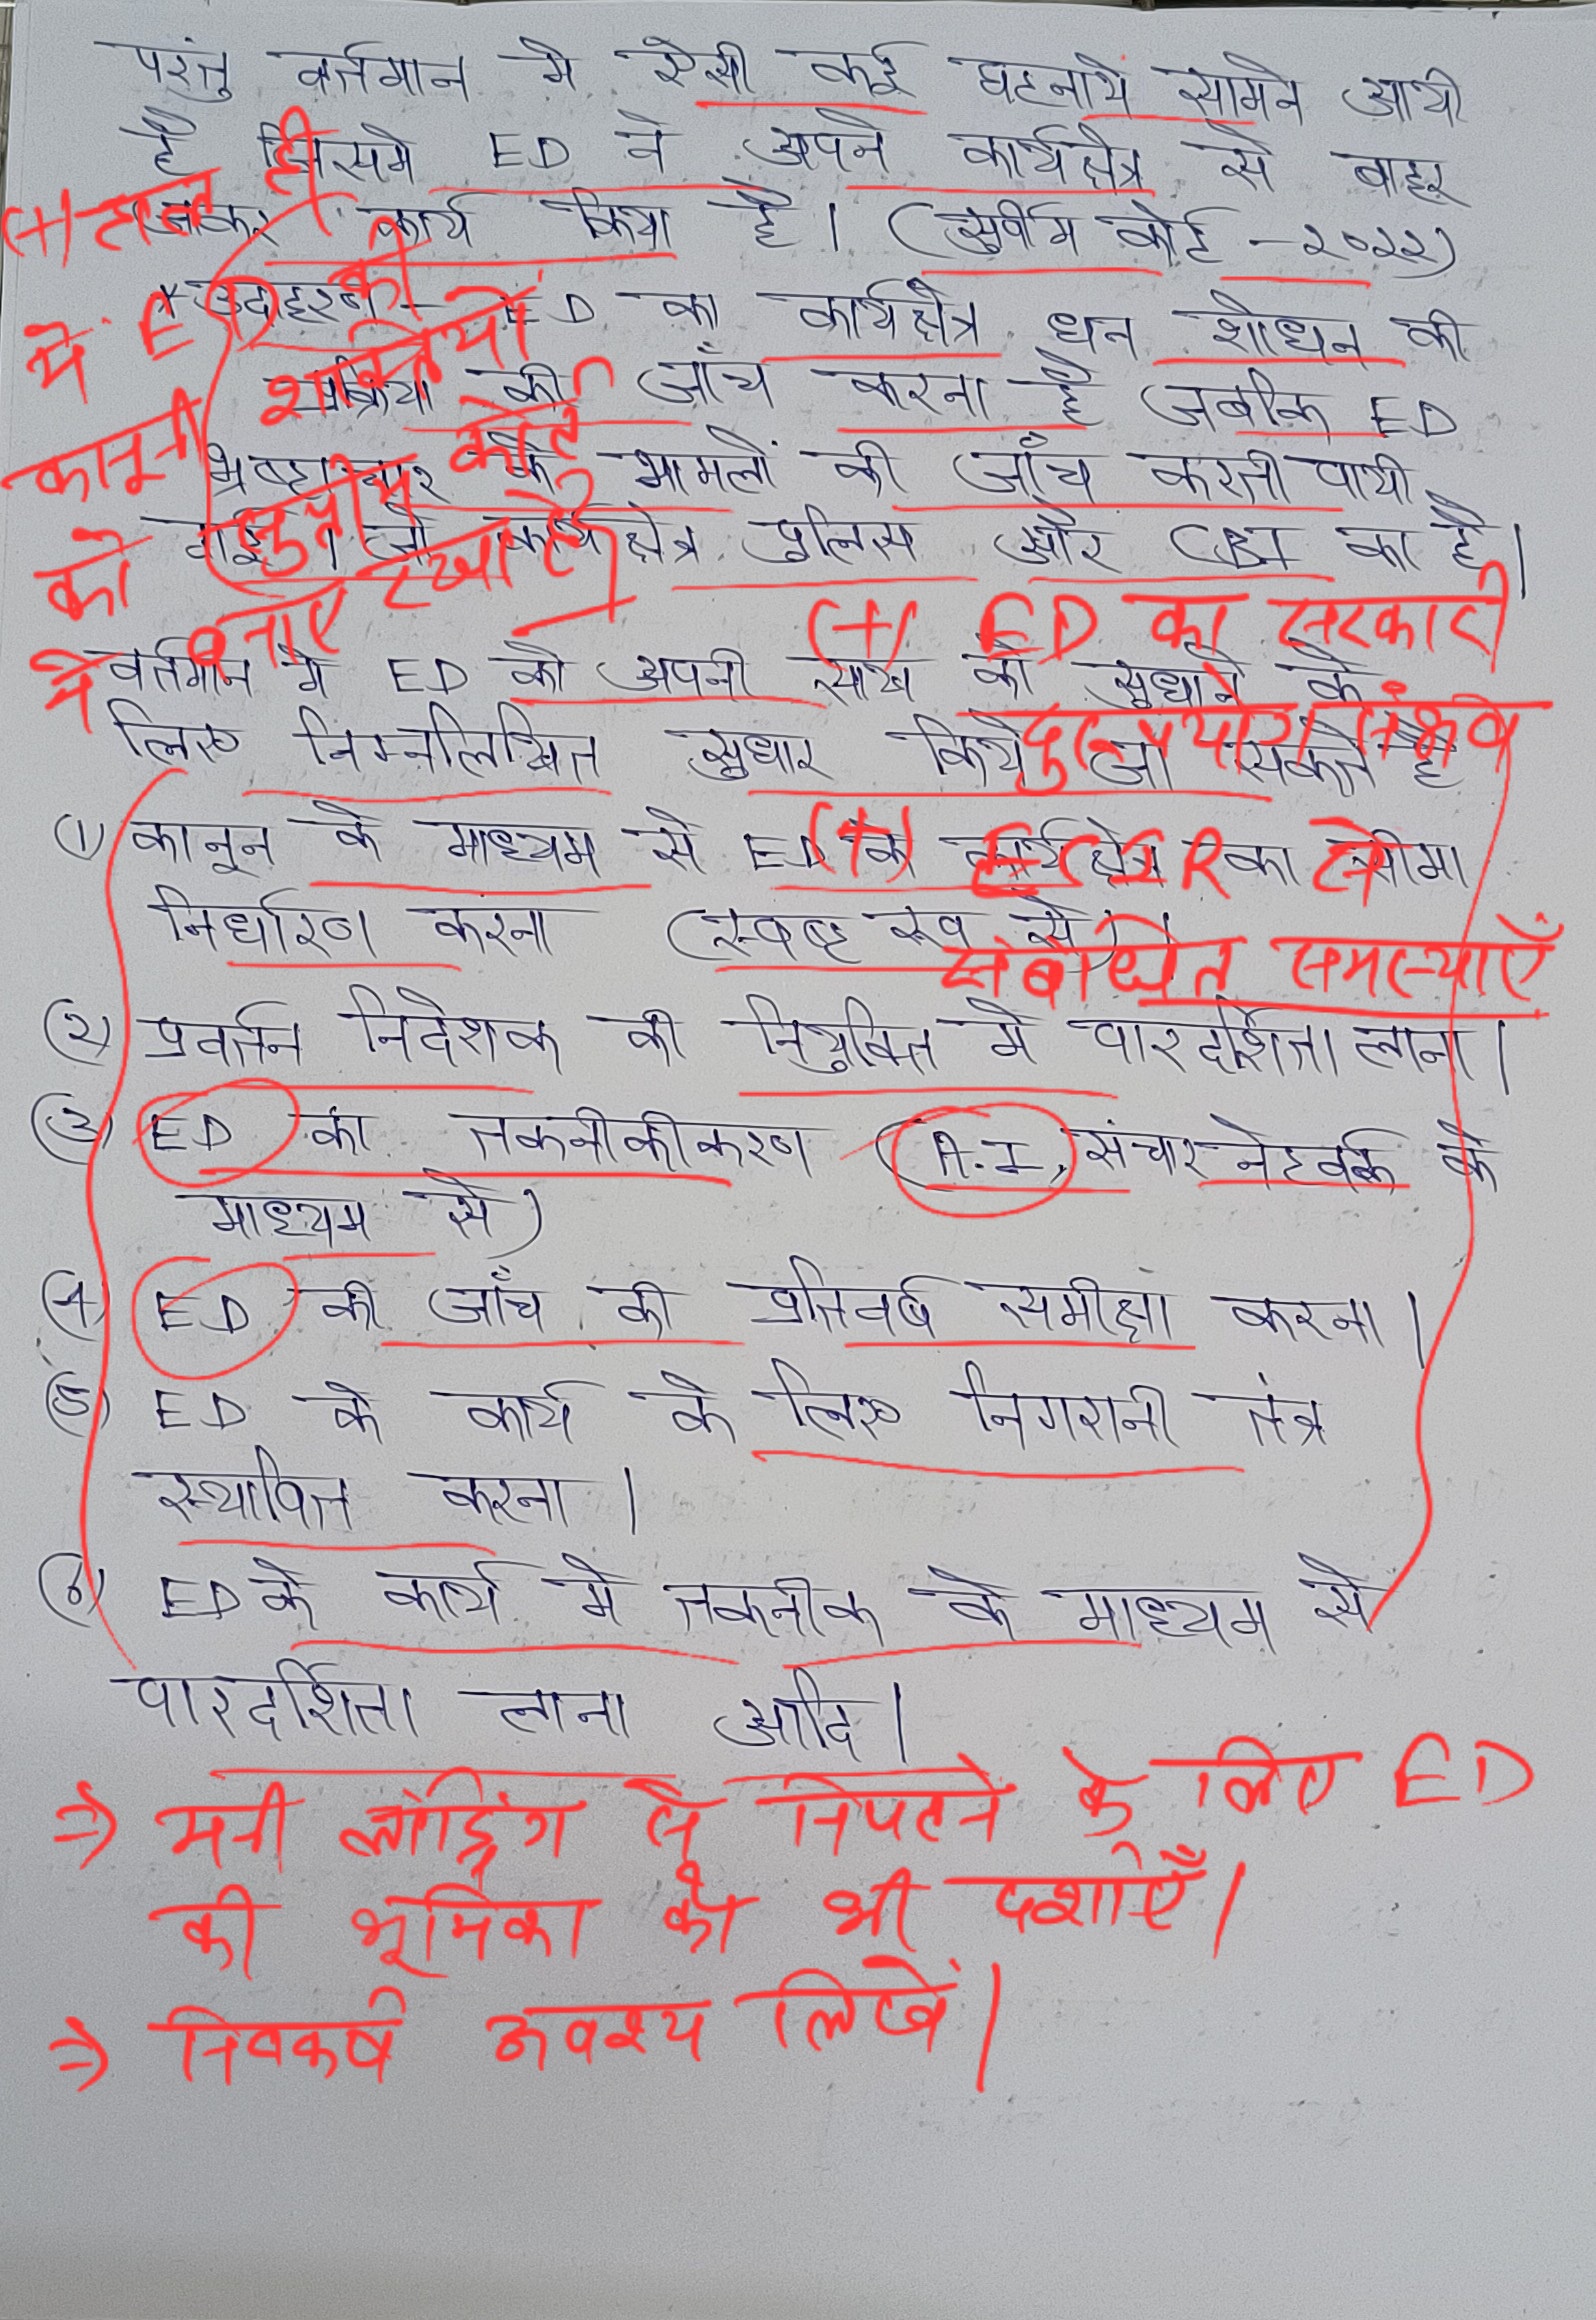 परंतु वर्तमान मे ऐसी कई घटनाये सामने आयी
है जिसमे ED ने अपने कार्यक्षेत्र से बाहर
जाकर कार्य किया है। (सुप्रीम कोर्ट - २०२२)
* उदाहरण - ED का कार्यक्षेत्र धन शोधन की
प्रक्रिया की जाँच करना है जबकि ED
भ्रष्टाचार के मामलों की जाँच करती पायी
गई। जो कार्यक्षेत्र पुलिस और CBI का है।
(+) हाल ही
में ED की
कानूनी शक्तियों
को सुप्रीम कोर्ट
ने बनाए रखा है
(+) ED का सरकारी
दुरुपयोग संभव
(+) ECIR से
संबंधित समस्याएँ
वर्तमान मे ED को अपनी साख को सुधारने के
लिए निम्नलिखित सुधार किये जा सकते है
(1) कानून के माध्यम से ED के कार्यक्षेत्र का सीमा
निर्धारण करना (स्पष्ट रूप से)।
(2) प्रवर्तन निदेशक की नियुक्ति मे पारदर्शिता लाना।
(3) ED का तकनीकीकरण (A.I, संचार नेटवर्क के
माध्यम से)
(4) ED की जाँच की प्रतिवर्ष समीक्षा करना।
(5) ED के कार्य के लिए निगरानी तंत्र
स्थापित करना।
(6) ED के कार्य मे तकनीक के माध्यम से
पारदर्शिता लाना आदि।
⇒ मनी लांड्रिंग से निपटने के लिए ED
की भूमिका को भी दर्शाएँ।
⇒ निष्कर्ष अवश्य लिखें।